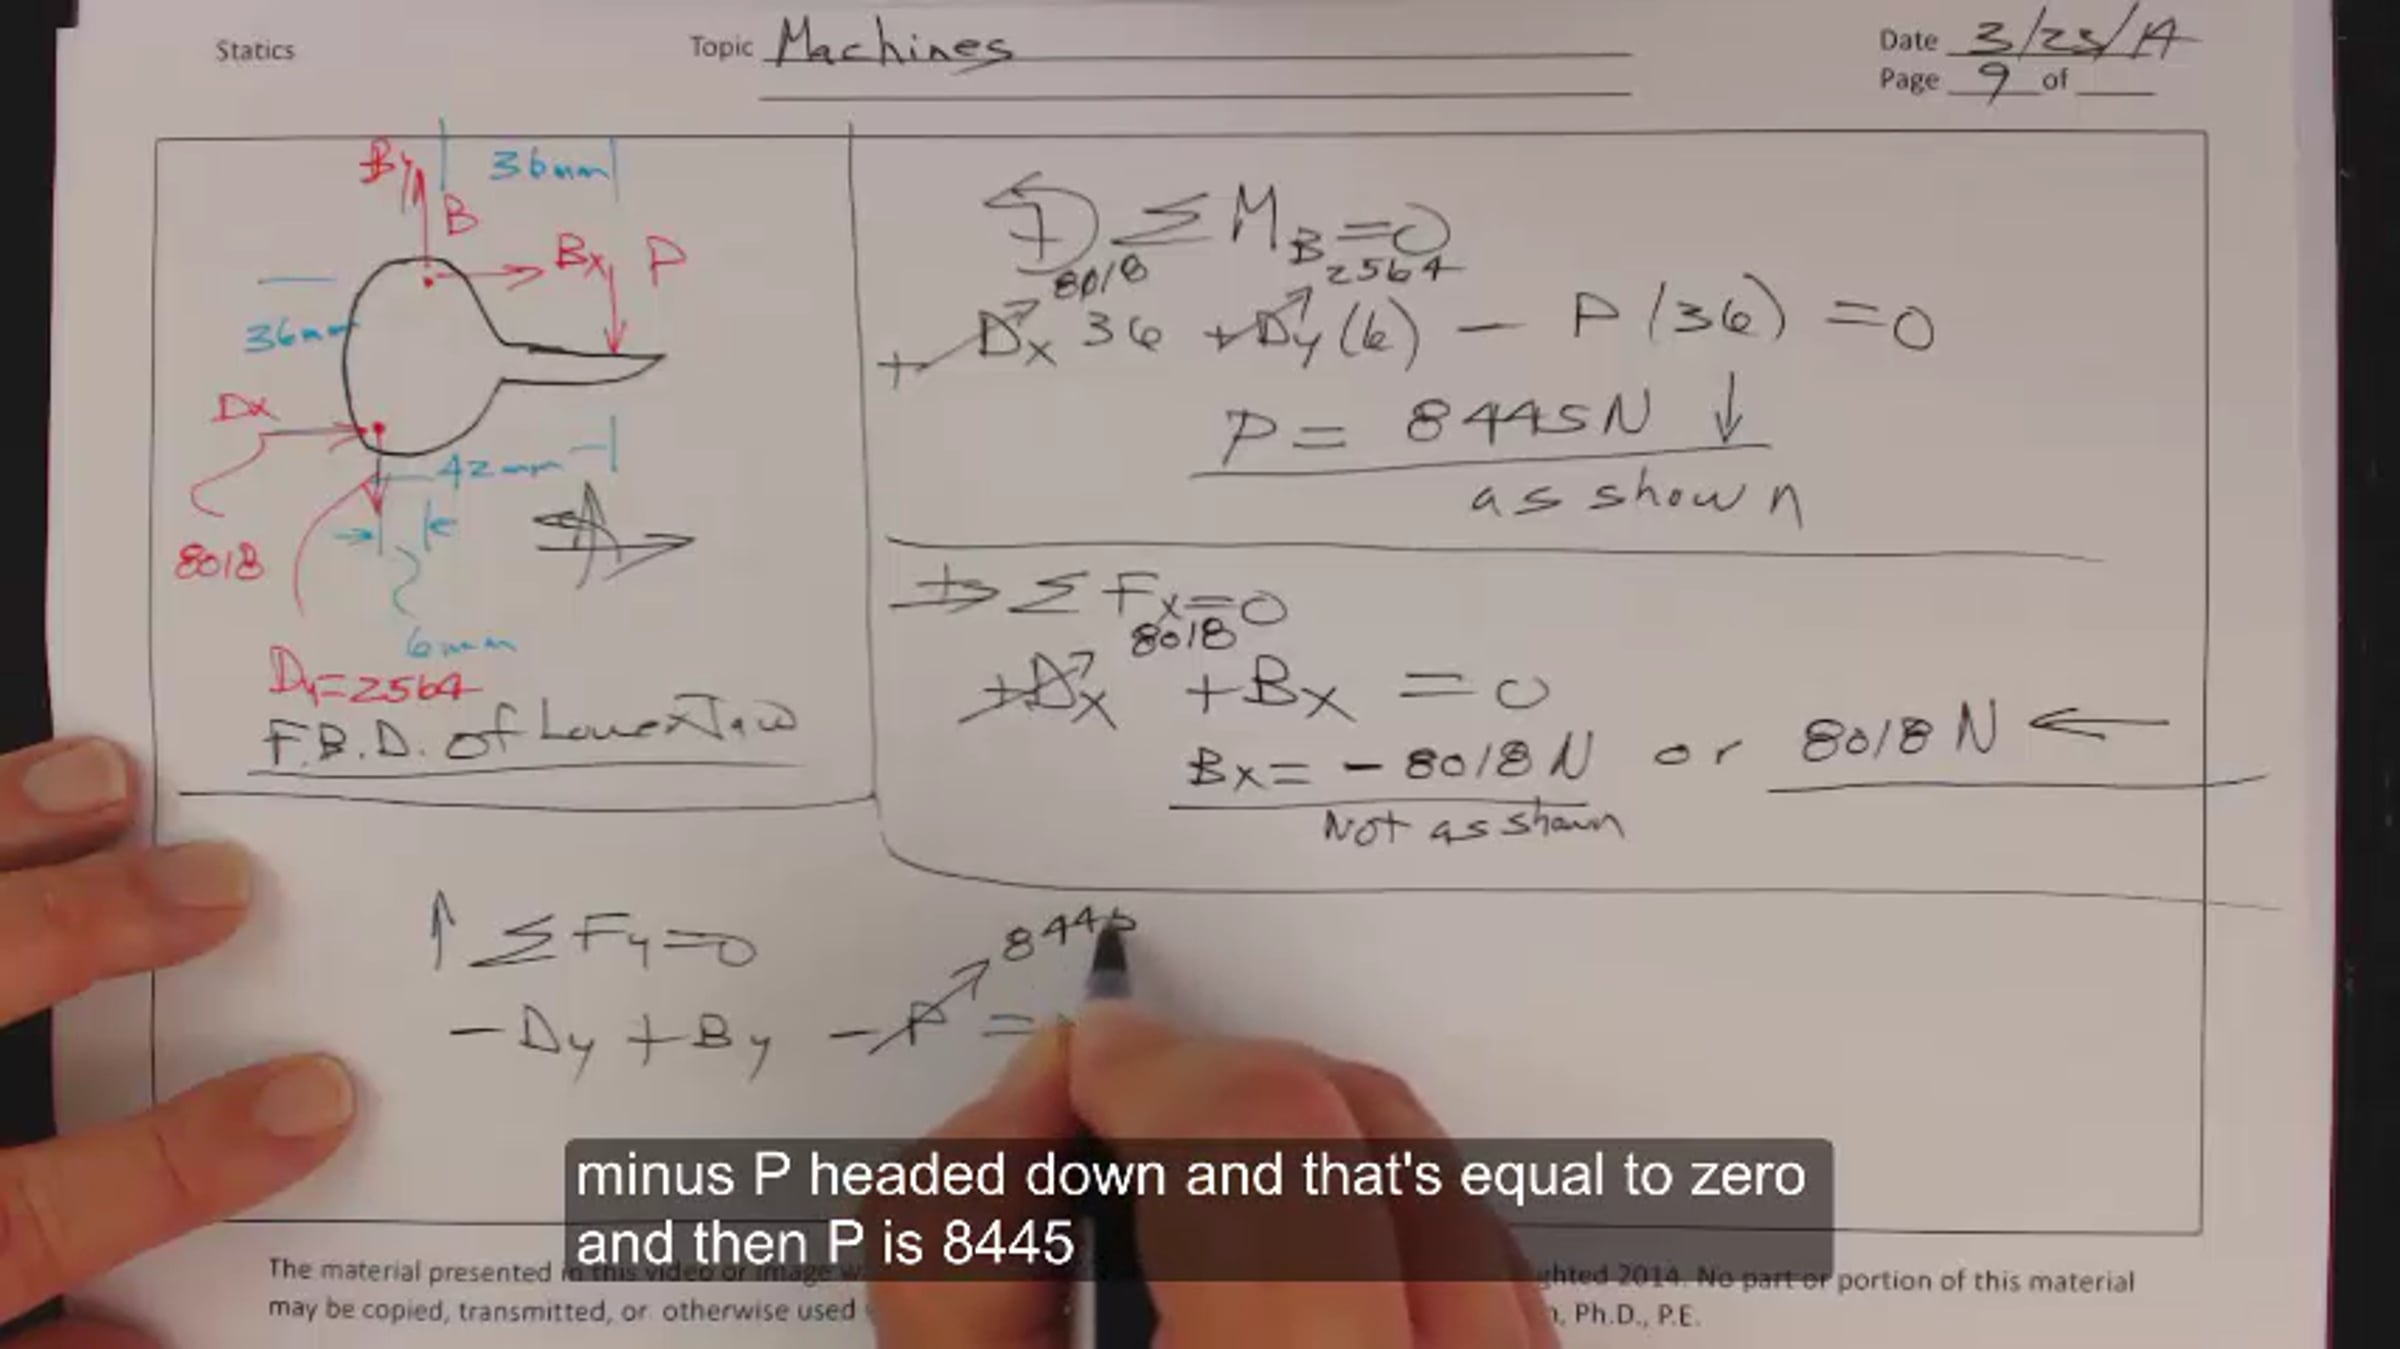 Statics
Topic Machines
Date 3/25/14
Page 9 of
By
36mm
B
Bx
P
36mm
Dx
42mm
8018
6mm
Dy=2564
F.B.D. of Lower Jaw
+ ΣMB=0
8018 2564
+Dx 36 +Dy(6) - P(36) =0
P= 8445N ↓
as shown
+→ ΣFx=0
8018
+Dx +Bx =0
Bx= -8018N or 8018N ←
Not as shown
↑ ΣFy=0
8445
-Dy +By -P =
minus P headed down and that's equal to zero
and then P is 8445
The material presented in this video or image w
ghted 2014. No part or portion of this material
may be copied, transmitted, or otherwise used
, Ph.D., P.E.